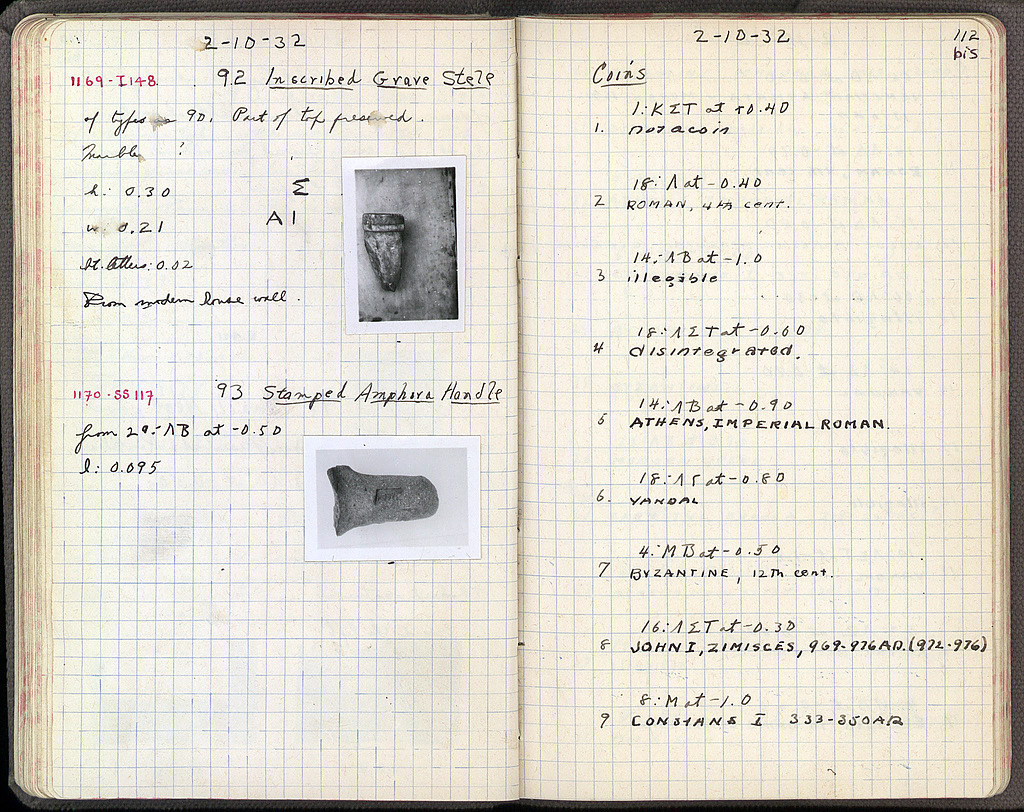 2-10-32
1169-I148. 92 Inscribed Grave Stele
of type as 90. Part of top preserved.
Marble ?
h: 0.30
Σ
w: 0.21
A I
ht. letters: 0.02
From modern house wall.
1170-SS 117 93 Stamped Amphora Handle
from 29:ΛB at -0.50
l: 0.095
2-10-32
112
bis
Coins
1:KΣT at +0.40
1. not a coin
18:Λ at -0.40
2 ROMAN, 4th cent.
14:ΛB at -1.0
3 illegible
18:ΛΣT at -0.60
4 disintegrated.
14:ΛB at -0.90
5 ATHENS, IMPERIAL ROMAN.
18:ΛΓ at -0.80
6. VANDAL
4:MB at -0.50
7 BYZANTINE, 12Th cent.
16:ΛΣT at -0.30
8 JOHN I, ZIMISCES, 969-976 A.D. (972-976)
8:M at -1.0
9 CONSTANS I 333-350 AD